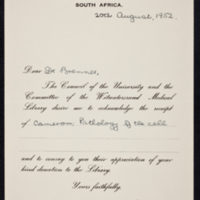 SOUTH AFRICA.
20th August, 1952.
Dear Dr Brenner,
The Council of the University and the
Committee of the Witwatersrand Medical
Library desire me to acknowledge the receipt
of Cameron: Pathology of the cell
and to convey to you their appreciation of your
kind donation to the Library.
Yours faithfully,